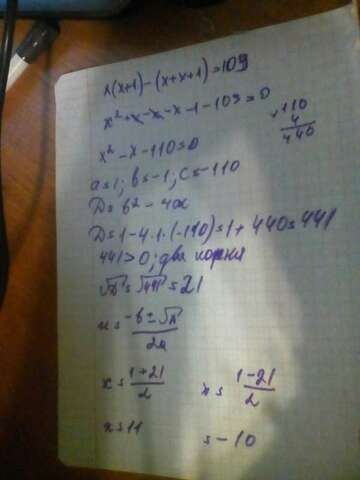 x(x+1)-(x+x+1)=109
x²+x-x-x-1-109=0
x²-x-110=0
×110
4
440
a=1; b=-1; c=-110
D=b²-4ac
D=1-4·1·(-110)=1+440=441
441>0; два корня
√D=√441=21
x=-b±√D/2a
x=1+21/2
x=1-21/2
x=11
=-10